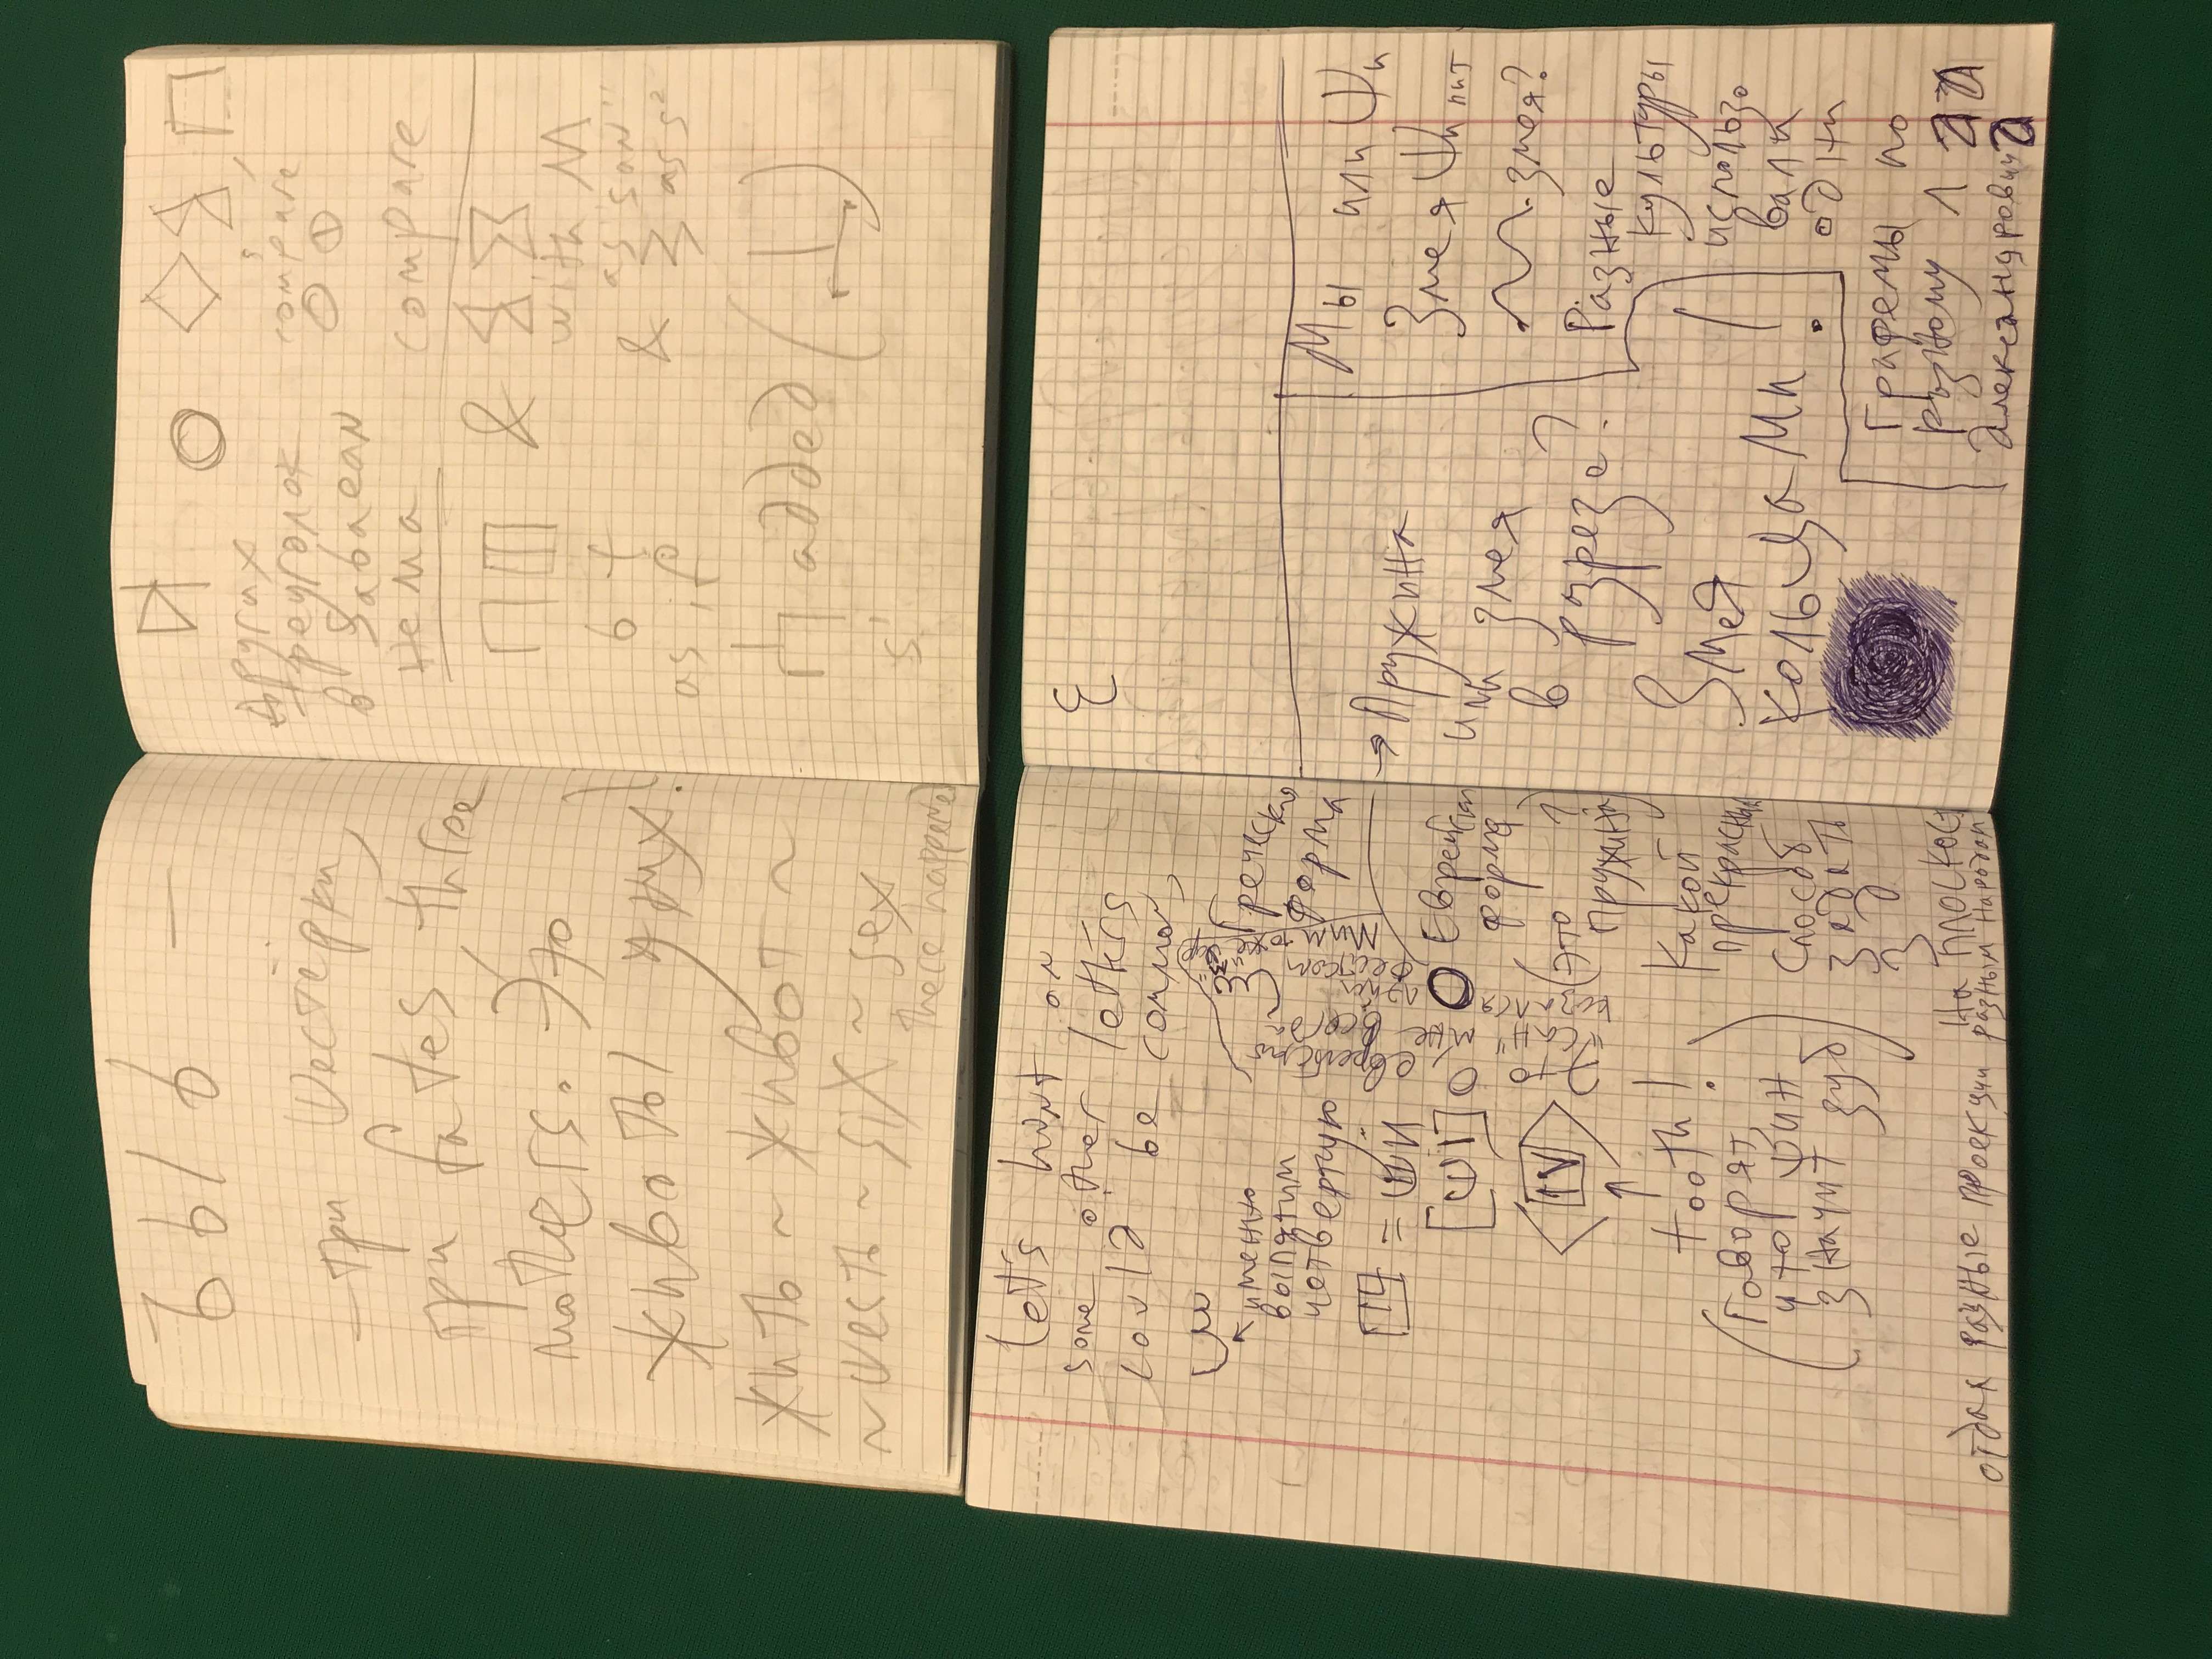 Ъ Ы Ь —
– три Шестёрки,
три fates, three
mothers. Это
животы у них!
жить ~ живот ~
~ шесть ~ six ~ sex
there happened
других
треуголок
в Sabaean
нема
compare
compare
&
with M
as "san"
& Σ as s²
6 t
as if
added (⊥)
s¹
Let's hint on
some other letters
could be common,
именно
выпятим
четвертую
= ший
[ШІ]
IV
tooth!
(говорят,
что шин
значит зуб)
Греческая
форма
Еврейская
форма
(это
пружина)
Какой
прекрасный
способ
задать
3D
на плоскос
отдал разные проекции разным народам
ξ
→ Пружина
или змея
в разрезе?
Змея
кольцами!
Мы или Ψи
Змея Ψипит
змея?
Разные
культуры
использо
вали
одни
графемы по
разному 1 a a
Александрович a